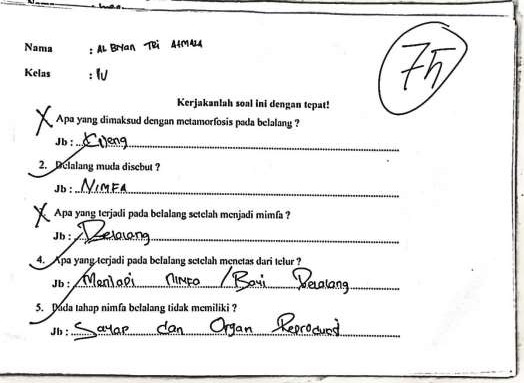 Nama : AL Bryan TRi ATMAJA
75
Kelas : IV
Kerjakanlah soal ini dengan tepat!
Apa yang dimaksud dengan metamorfosis pada belalang ?
Jb :
2. Belalang muda disebut ?
Jb : NIMFA
Apa yang terjadi pada belalang setelah menjadi mimfa ?
Jb : Belalang
4. Apa yang terjadi pada belalang setelah menetas dari telur ?
Jb : Menjadi NIMFA / Bayi Belalang
5. Pada tahap nimfa belalang tidak memiliki ?
Jb : Sayap dan Organ Reproduksi